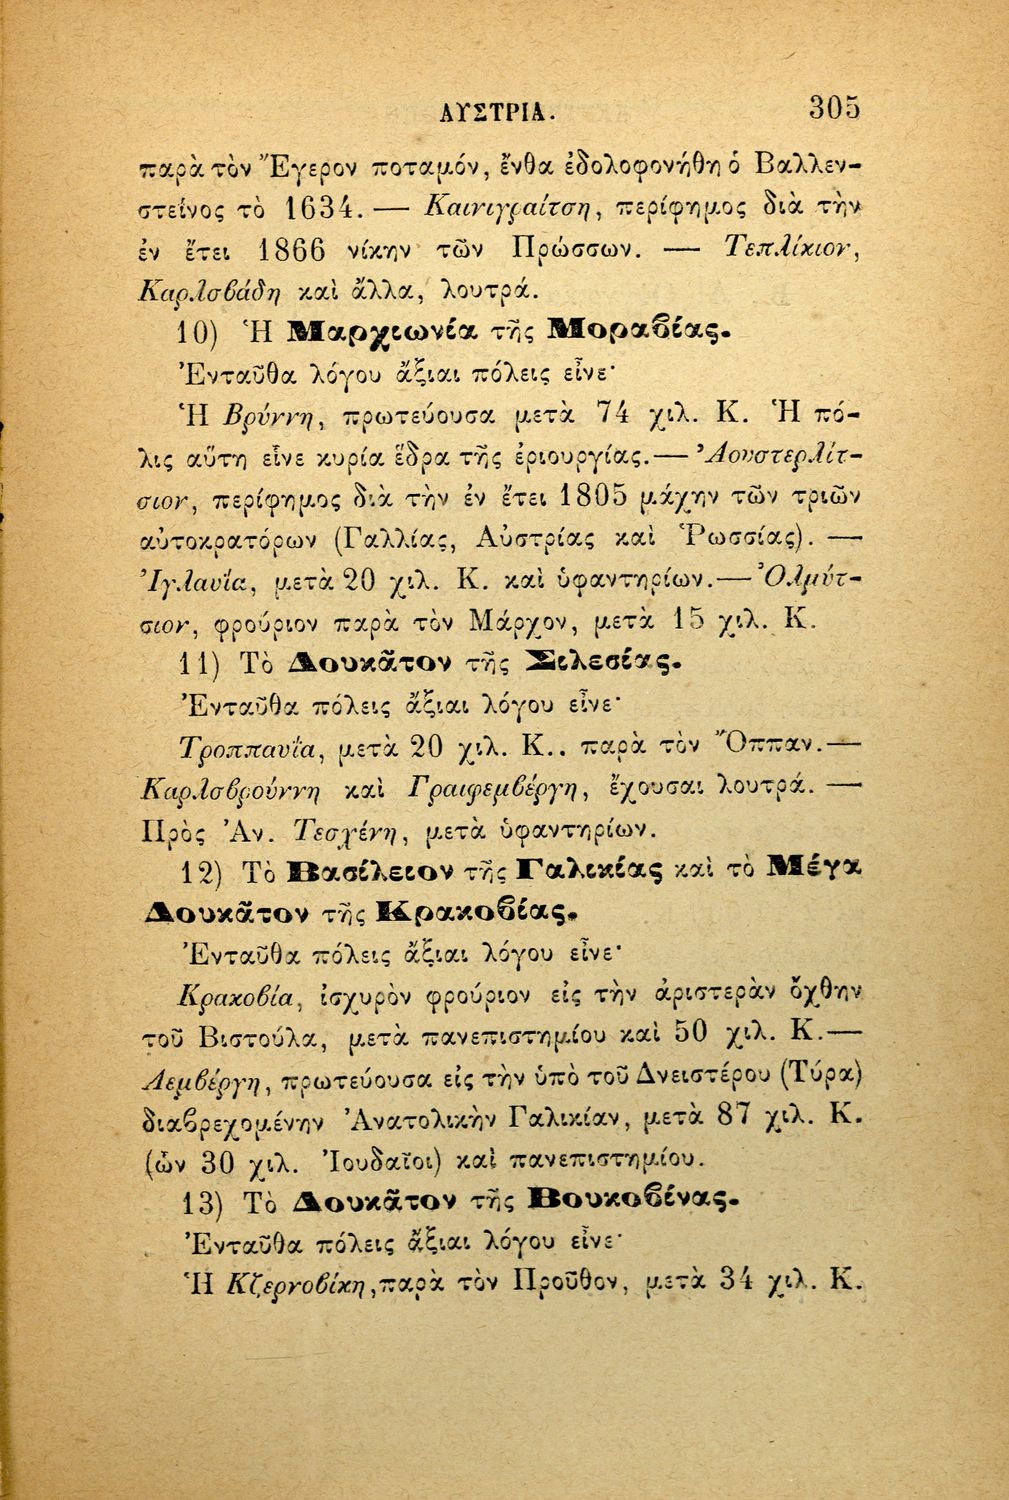 ΑΥΣΤΡΙΑ. 305
παρὰ τὸν Ἔγερον ποταμόν, ἔνθα ἐδολοφονήθη ὁ Βαλλεν-
στεῖνος τὸ 1634. — Καινιγραίτση, περίφημος διὰ τὴν
ἐν ἔτει 1866 νίκην τῶν Πρώσσων. — Τεπλίκιον,
Καρλσβάδη καὶ ἄλλα, λουτρά.
10) Ἡ Μαρχιωνία τῆς Μοραβίας.
Ἐνταῦθα λόγου ἄξιαι πόλεις εἶνε·
Ἡ Βρύννη, πρωτεύουσα μετὰ 74 χιλ. Κ. Ἡ πό-
λις αὕτη εἶνε κυρία ἕδρα τῆς ἐριουργίας. — Ἀουστερλίτ-
σιον, περίφημος διὰ τὴν ἐν ἔτει 1805 μάχην τῶν τριῶν
αὐτοκρατόρων (Γαλλίας, Αὐστρίας καὶ Ῥωσσίας). —
Ἰγλαυΐα, μετὰ 20 χιλ. Κ. καὶ ὑφαντηρίων. — Ὀλμύτ-
σιον, φρούριον παρὰ τὸν Μάρχον, μετὰ 15 χιλ. Κ.
11) Τὸ Δουκᾶτον τῆς Σιλεσίας.
Ἐνταῦθα πόλεις ἄξιαι λόγου εἶνε·
Τροππαυΐα, μετὰ 20 χιλ. Κ.. παρὰ τὸν Ὄππαν. —
Καρλσβρούννη καὶ Γραιφεμβέργη, ἔχουσαι λουτρά. —
Πρὸς Ἀν. Τεσχένη, μετὰ ὑφαντηρίων.
12) Τὸ Βασίλειον τῆς Γαλικίας καὶ τὸ Μέγα
Δουκᾶτον τῆς Κρακοβίας.
Ἐνταῦθα πόλεις ἄξιαι λόγου εἶνε·
Κρακοβία, ἰσχυρὸν φρούριον εἰς τὴν ἀριστερὰν ὄχθην
τοῦ Βιστούλα, μετὰ πανεπιστημίου καὶ 50 χιλ. Κ. —
Λεμβέργη, πρωτεύουσα εἰς τὴν ὑπὸ τοῦ Δνειστέρου (Τύρα)
διαβρεχομένην Ἀνατολικὴν Γαλικίαν, μετὰ 87 χιλ. Κ.
(ὧν 30 χιλ. Ἰουδαῖοι) καὶ πανεπιστημίου.
13) Τὸ Δουκᾶτον τῆς Βουκοβίνας.
Ἐνταῦθα πόλεις ἄξιαι λόγου εἶνε·
Ἡ Κζερνοβίκη, παρὰ τὸν Προῦθον, μετὰ 34 χιλ. Κ.